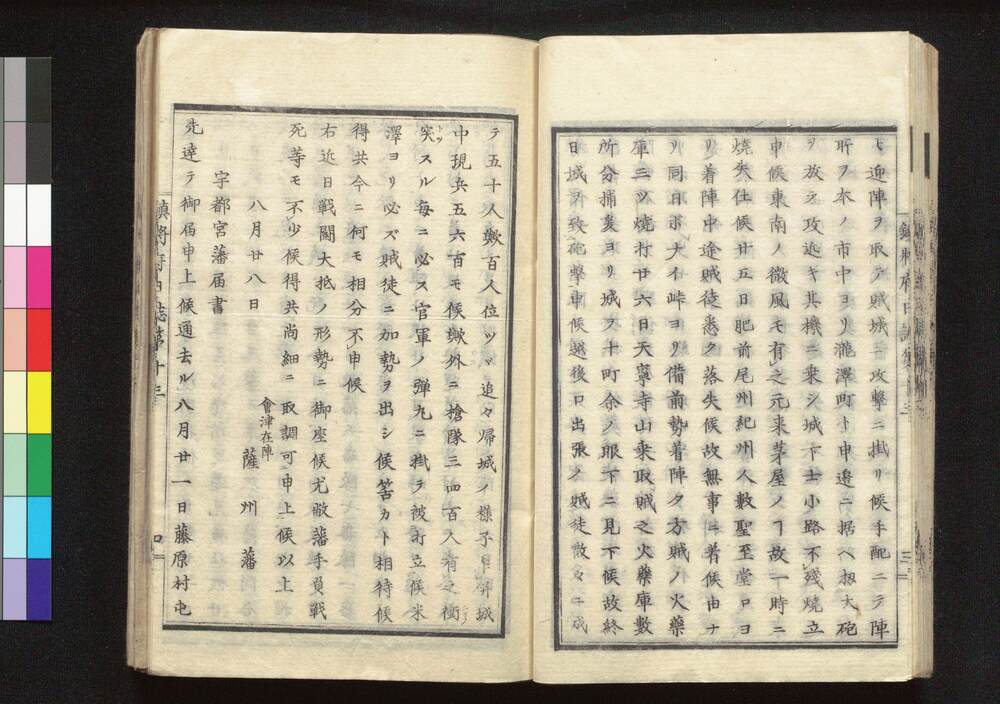 ヒ迎陣ヲ取テ賊城ニ攻撃ニ掛リ候手配ニテ陣
所ヲ本ノ市中ヨリ瀧澤町ト申邊ニ据ヘ扨大砲
ヲ放テ攻近キ其機ニ乗シ城下士小路不残焼立
申候東南ノ微風モ有之元来茅屋ノヿ故一時ニ
焼失仕候廿五日肥前尾州紀州人數聖至堂口ヨ
リ着陣中途賊徒悉ク落失候故無事ニ着候由ナ
リ同日ホナイ峠ヨリ備前勢着陣夕方賊ノ火藥
庫三ツ焼打廿六日天寧寺山乗取賊之火藥庫數
所分捕夫ヨリ城ヲ十町余ノ眼下ニ見下候故終
日城ヲ致砲撃申候越後口出張ノ賊徒散々ニ成
鎮將府日誌第十三
三
テ五十人歟百人位ツヽ追々帰城ノ様子
城中現兵五六百モ候歟外ニ搶隊三四百人有之衝
突スル毎ニ必ス官軍ノ弾丸ニ掛ラ被打立候米
澤ヨリ必ズ賊徒ニ加勢ヲ出シ候筈カト相待候
得共今ニ何モ相分不申候
右近日戦闘大抵ノ形勢ニ御座候尤敝藩手負戦
死等モ不少候得共尚細ニ取調可申上候以上
會津在陣
八月廿八日　薩州藩
宇都宮藩届書
先達テ御届申上候通去ル八月廿一日藤原村屯
鎮將府日誌第十三
四